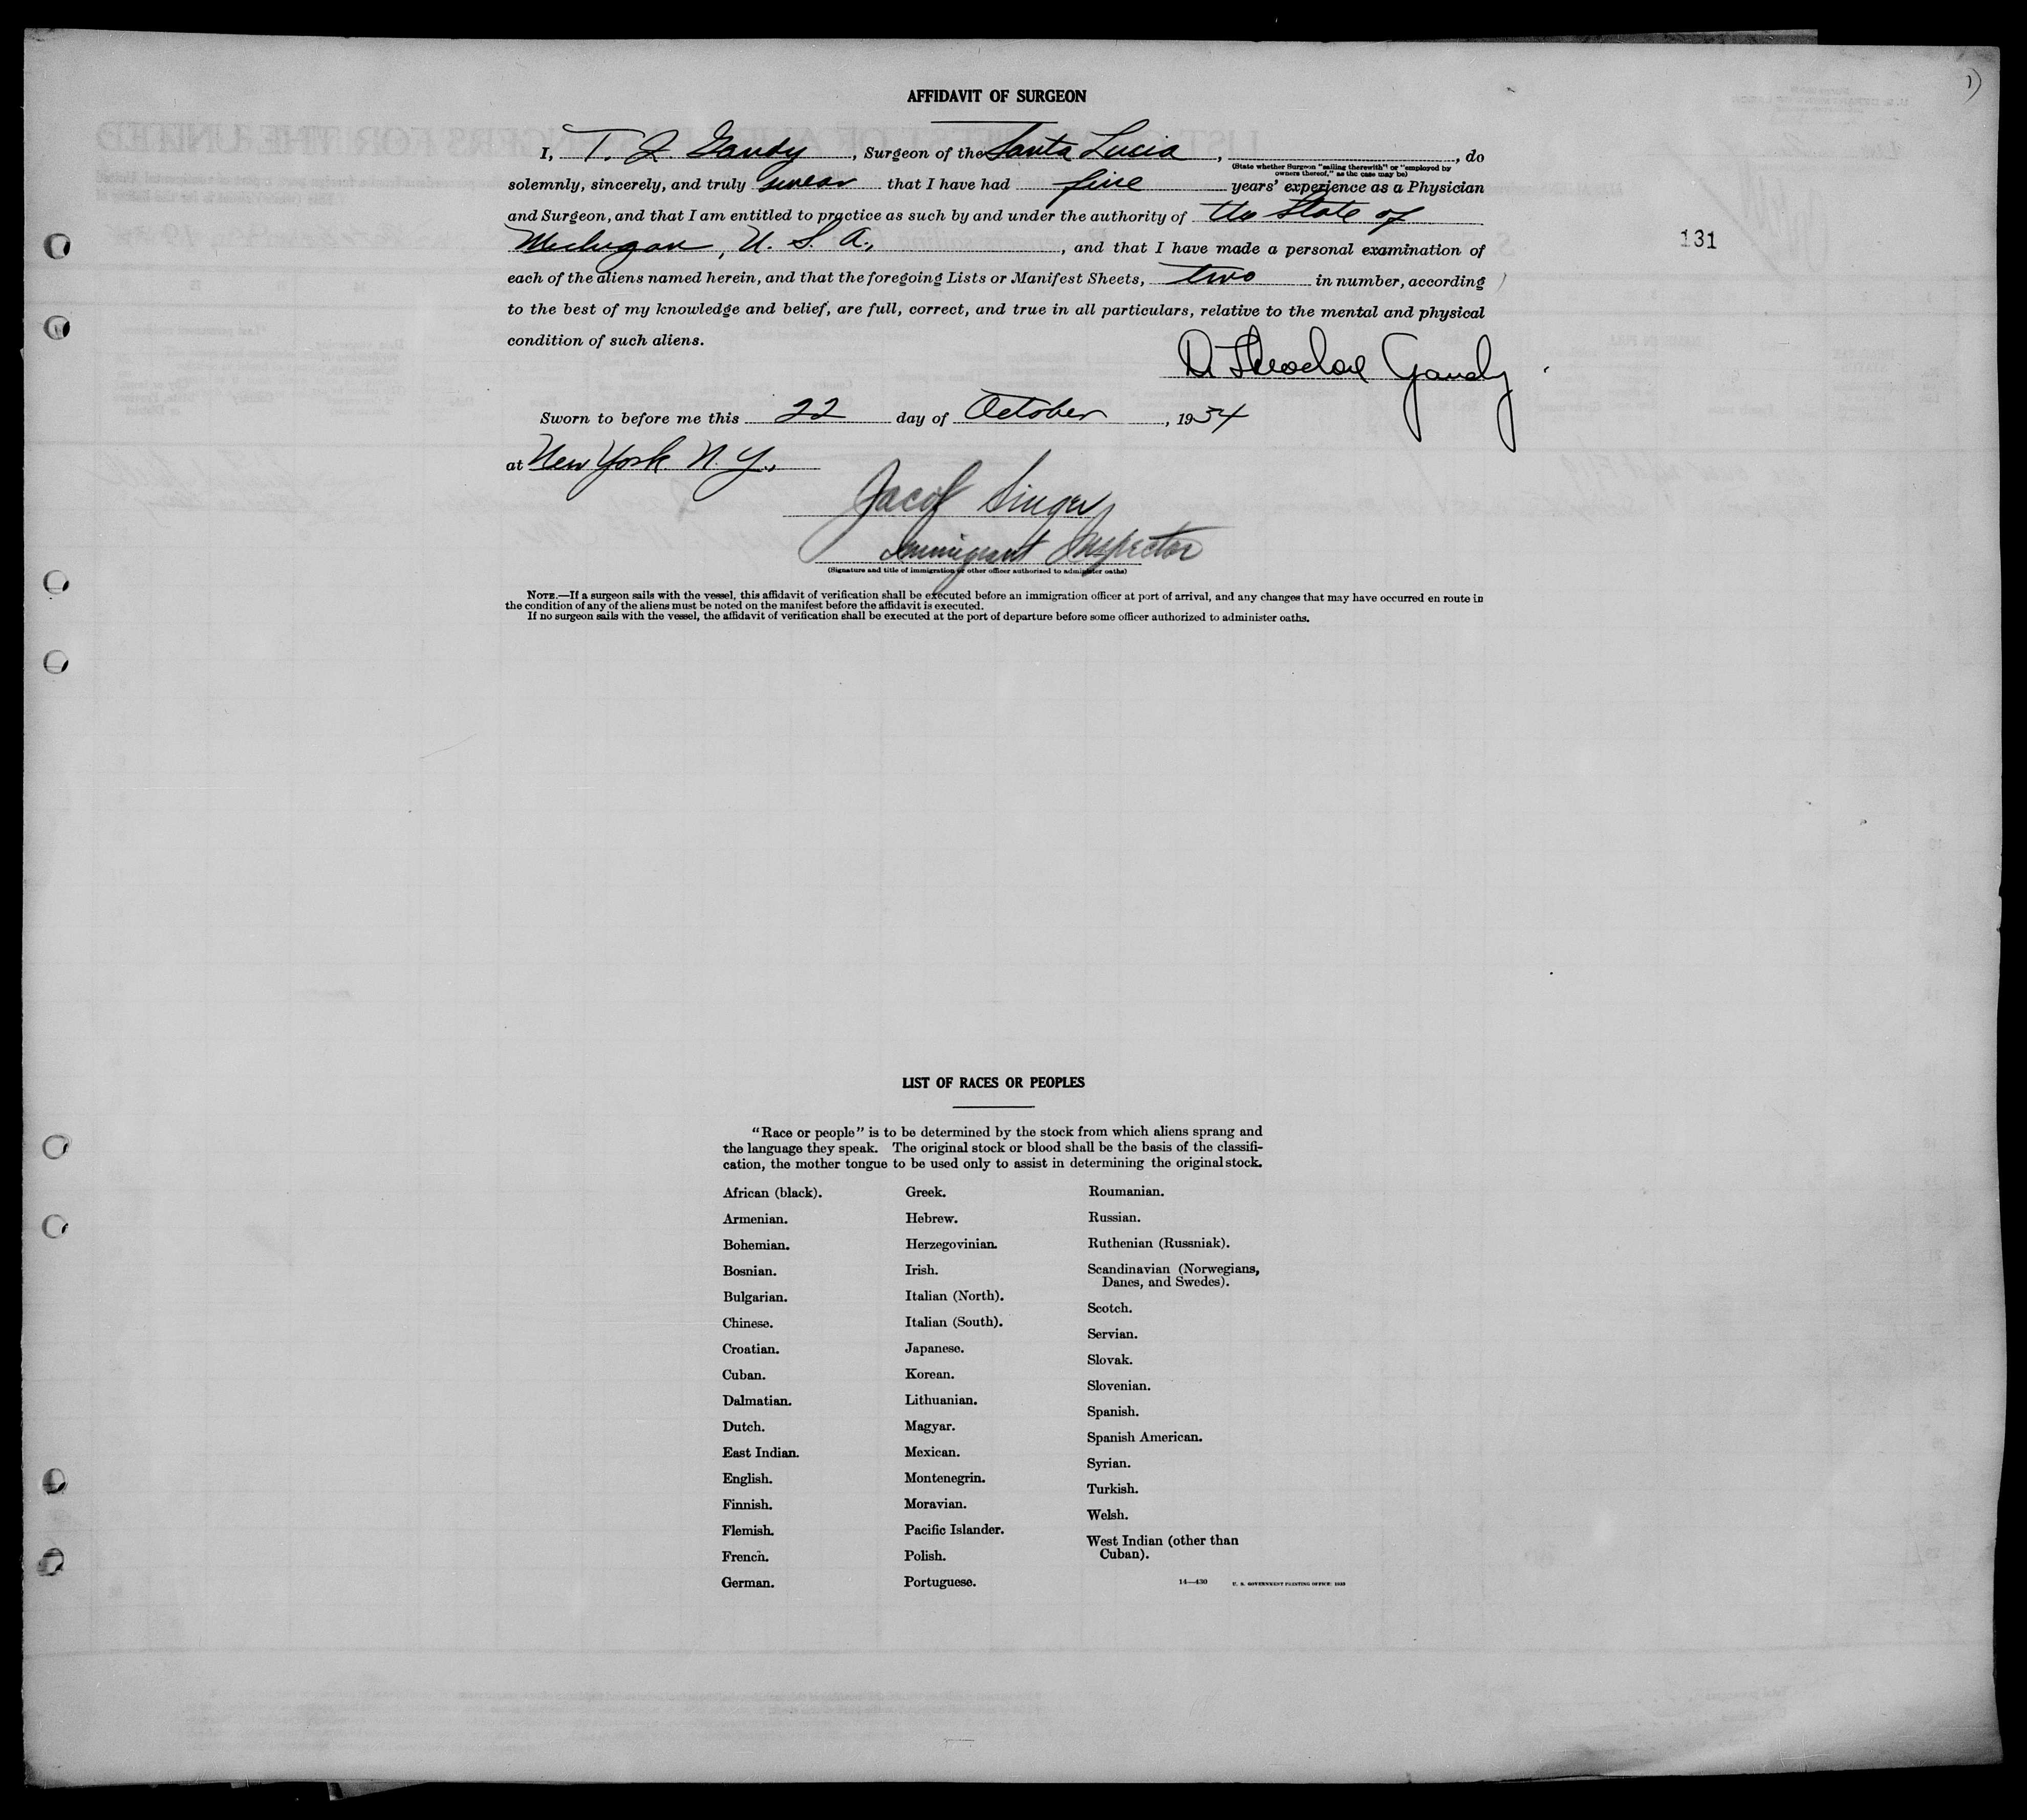 AFFIDAVIT OF SURGEON
I, T. J. Gandy, Surgeon of the Santa Lucia, , do
(State whether Surgeon "sailing therewith" or "employed by
owners thereof," as the case may be)
solemnly, sincerely, and truly swear that I have had five years' experience as a Physician
and Surgeon, and that I am entitled to practice as such by and under the authority of the State of
Michigan, U. S. A., , and that I have made a personal examination of
131
each of the aliens named herein, and that the foregoing Lists or Manifest Sheets, two in number, according
to the best of my knowledge and belief, are full, correct, and true in all particulars, relative to the mental and physical
condition of such aliens.
Theodore Gandy
Sworn to before me this 22 day of October, 1934
at New York N. Y.,
Jacob Singer
Immigrant Inspector
(Signature and title of immigration or other officer authorized to administer oaths)
NOTE.—If a surgeon sails with the vessel, this affidavit of verification shall be executed before an immigration officer at port of arrival, and any changes that may have occurred en route in
the condition of any of the aliens must be noted on the manifest before the affidavit is executed.
If no surgeon sails with the vessel, the affidavit of verification shall be executed at the port of departure before some officer authorized to administer oaths.
LIST OF RACES OR PEOPLES
"Race or people" is to be determined by the stock from which aliens sprang and
the language they speak. The original stock or blood shall be the basis of the classifi-
cation, the mother tongue to be used only to assist in determining the original stock.
African (black).
Armenian.
Bohemian.
Bosnian.
Bulgarian.
Chinese.
Croatian.
Cuban.
Dalmatian.
Dutch.
East Indian.
English.
Finnish.
Flemish.
French.
German.
Greek.
Hebrew.
Herzegovinian.
Irish.
Italian (North).
Italian (South).
Japanese.
Korean.
Lithuanian.
Magyar.
Mexican.
Montenegrin.
Moravian.
Pacific Islander.
Polish.
Portuguese.
Roumanian.
Russian.
Ruthenian (Russniak).
Scandinavian (Norwegians,
Danes, and Swedes).
Scotch.
Servian.
Slovak.
Slovenian.
Spanish.
Spanish American.
Syrian.
Turkish.
Welsh.
West Indian (other than
Cuban).
14—430 U. S. GOVERNMENT PRINTING OFFICE: 1933